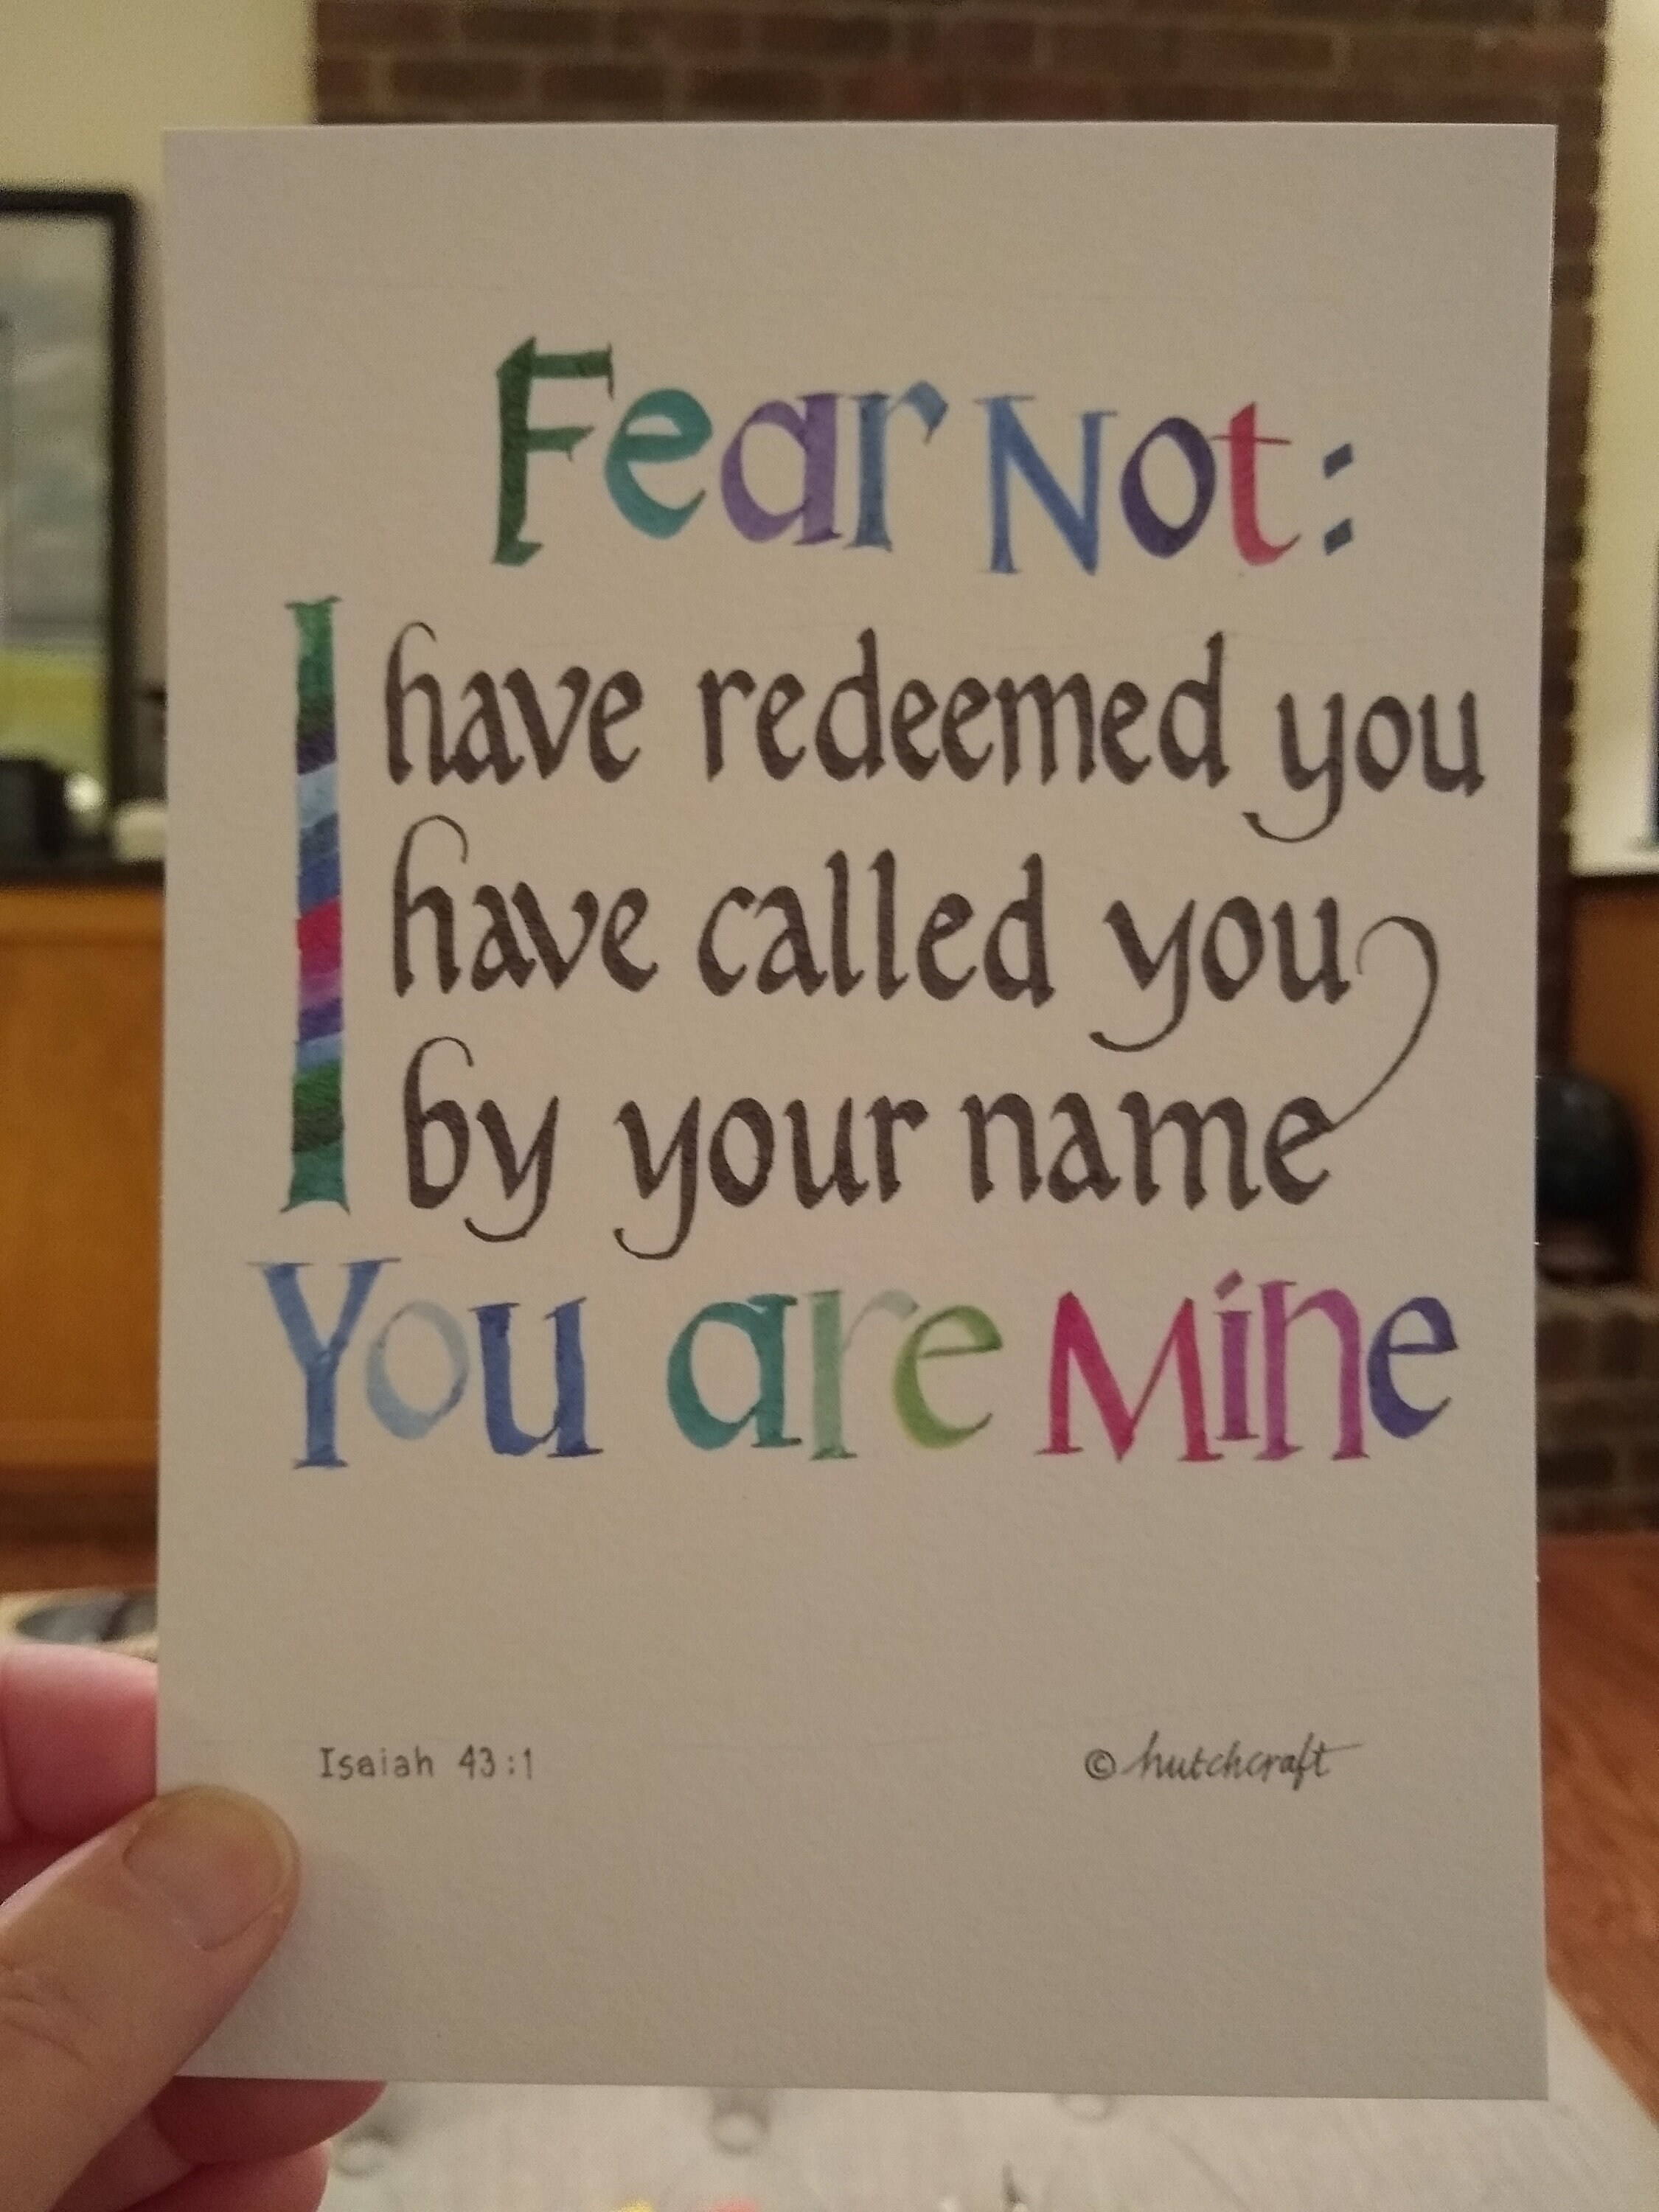 Fear Not:
I have redeemed you
have called you
by your name
You are Mine
Isaiah 43:1
© hutchcraft